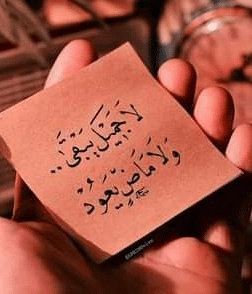 لَا جَمِيْل يَبْقَى ..
وَلَا مَاضٍ يَعُوْدُ